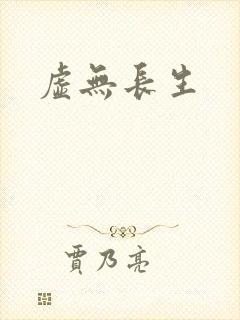 虛無長生
賈乃亮